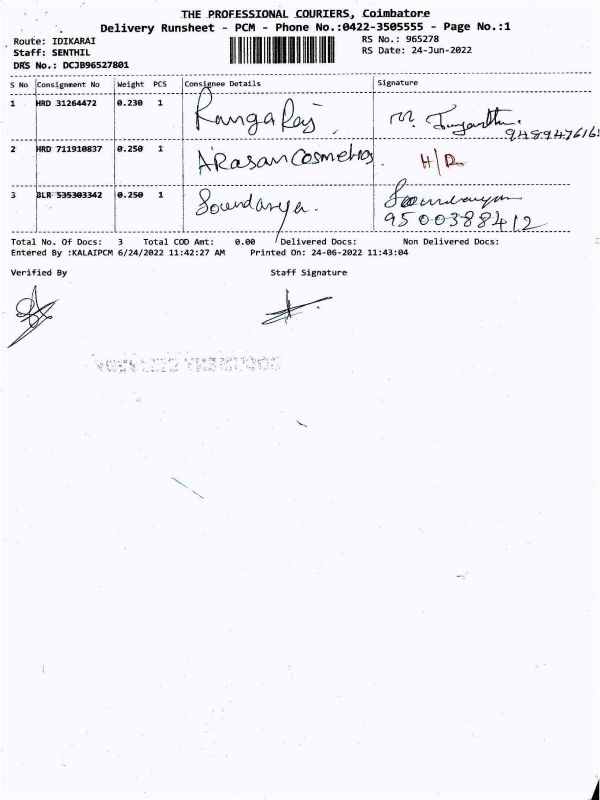 THE PROFESSIONAL COURIERS, Coimbatore
Delivery Runsheet - PCM - Phone No.:0422-3505555 - Page No.:1
Route: IDIKARAI
RS No.: 965278
Staff: SENTHIL
RS Date: 24-Jun-2022
DRS No.: DCJB96527801
S No Consignment No Weight PCS Consignee Details Signature
1 HRD 31264472 0.230 1 Ranga Raj
9489476165
2 HRD 711910837 0.250 1 ARasan Cosmetics H/R
3 BLR 535303342 0.250 1 Soundarya. Soundarya
9500388412
Total No. Of Docs: 3 Total COD Amt: 0.00 Delivered Docs: Non Delivered Docs:
Entered By :KALAIPCM 6/24/2022 11:42:27 AM Printed On: 24-06-2022 11:43:04
Verified By Staff Signature